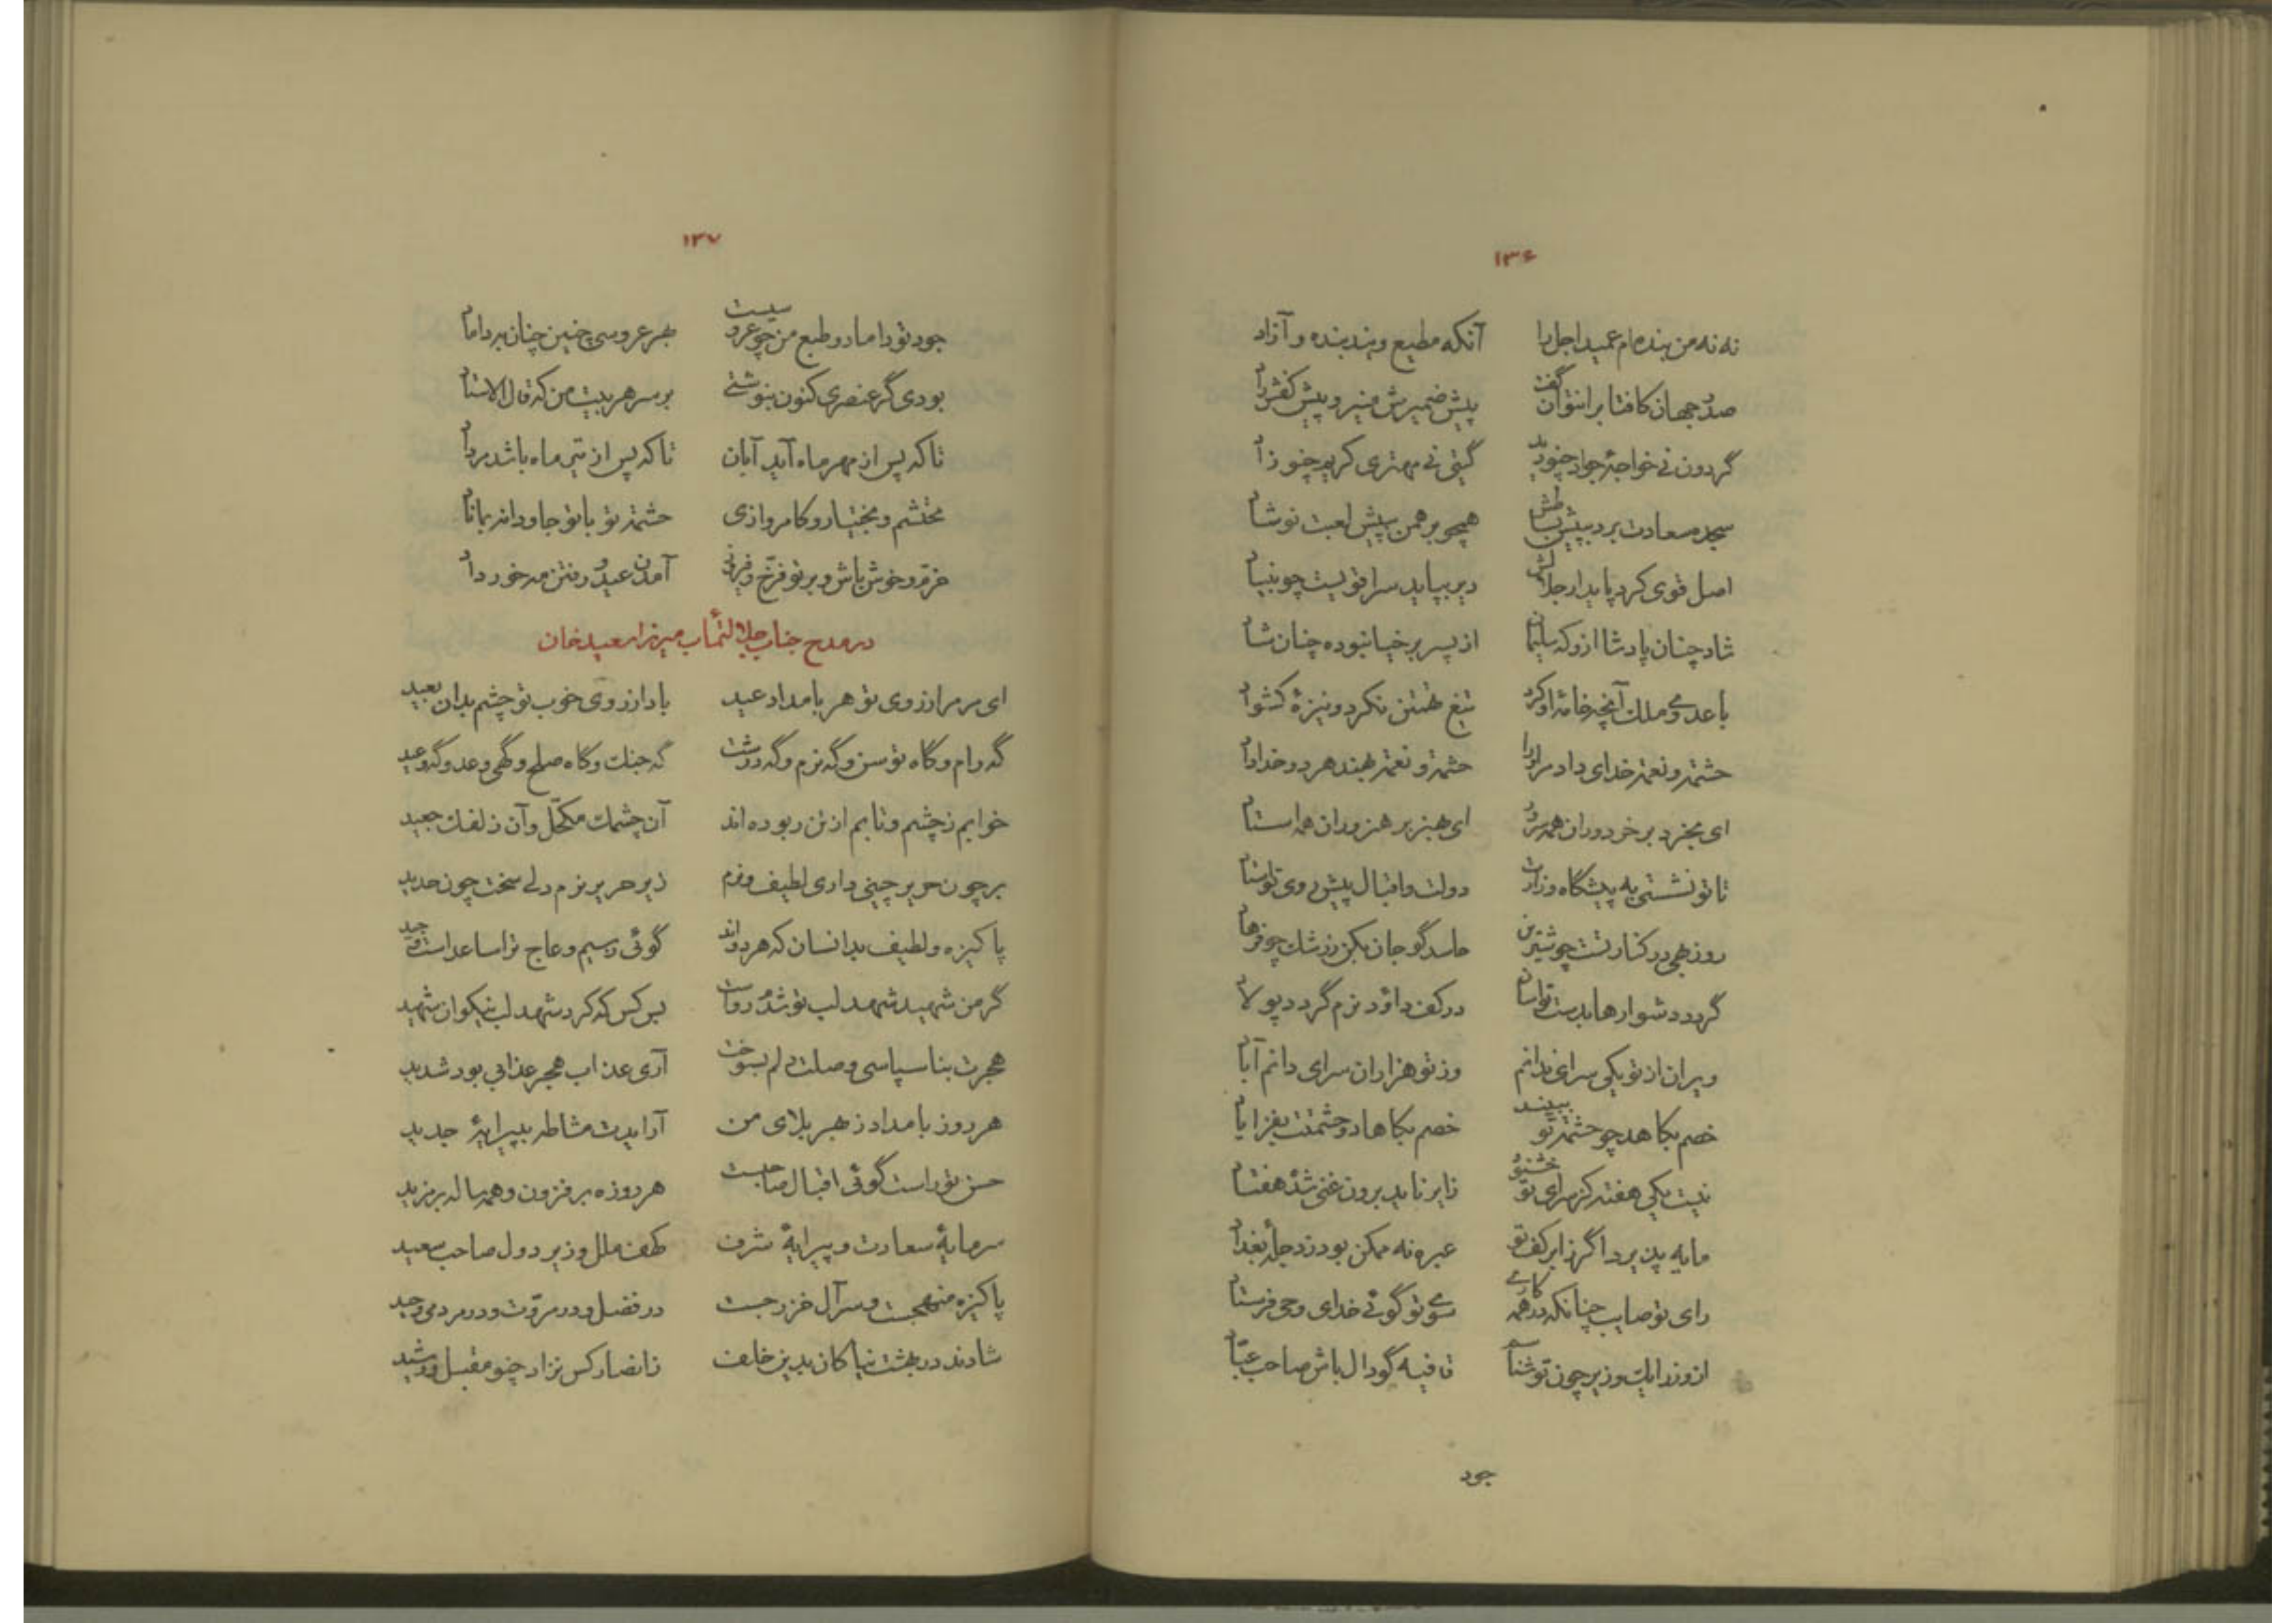 ۱۳۶
نه نه من بنده‌ام عمید اجل را آنکه مطیع ویند بنده و آزاد
صدر جهان کافتابرا نتوان گفت پیش ضمیرش منیر و پیش کفش راد
گردون نی خواجهٔ جواد چنو دید گیتی نی مهتری کریم چنو زاد
سجده سعادت برد بپیش بساطش همچو برهمن بپیش لعبت نوشاد
اصل قوی کرد پایدار جلالش دیر بپاید سرا قویست چو بنیاد
شاد چنان پادشا ازو که سلیمان از پسر برخیا نبوده چنان شاد
با عدوی ملک آنچه خامهٔ او کرد تیغ تهمتن نکرد و نیزهٔ کشواد
حشمت و نعمت خدای داد مر او را حشمت و نعمت نهند هر دو خداداد
ای بخرد بر خردوران همه سرور ای بهنر بر هنروران همه استاد
تا تو نشستی به پیشگاه وزارت دولت و اقبال پیش روی تو استاد
روز بهی در کنار تست چو شیرین حاسد گو جان بکن ز رشک چو فرهاد
گردد دشوارها بدست تو آسان در کف داود نرم گردد پولاد
ویران از تو یکی سرای ندانم وز تو هزاران سرای دانم آباد
خصم بکاهد چو حشمت تو ببیند خصم بکاهاد و حشمتت بفزایاد
نیست یکی هفته کز سرای تو خشنود زایر ناید برون غنی شده هفتاد
مایه پذیرد اگر ز ابر کف تو عبره نه ممکن بود ز دجلهٔ بغداد
رای تو صایب چنانکه در همه کاری سوی تو گوئی خدای وحی فرستاد
از وزرا یک وزیر چون تو شناسم قافیه گو دال باش صاحب عباد
جود
۱۳۷
جود تو داماد و طبع من چو عروسیست بهر عروسی چنین چنان سر داماد
بودی گر عنصری کنون بنوشتی بر سر هر بیت من که قال الاستاد
تا که پس از مهر ماه آید آبان تا که پس از تیر ماه باشد مرداد
محتشم و بختیار و کامروا زی حشمت تو با تو جاودانه بماناد
خرم و خوش باش و بر تو فرخ و فرخنده آمدن عید و رفتن مه خرداد
در مدح جناب جلالتمآب میرزا سعید خان
ای مر مرا ز روی تو هر بامداد عید بادا ز روی خوب تو چشم بدان بعید
گه رام و گاه توسن و گه نرم و گه درشت گه جنگ و گاه صلح و گهی وعد و گه وعید
خوابم ز چشم و تابم از تن ربوده‌اند آن چشمک مکحل و آن زلفک جعید
بر چون حریر چینی داری لطیف و نرم زیر حریر نرم دلی سخت چون حدید
پاکیزه و لطیف بدانسان که هر دواند گوئی ز سیم و عاج ترا ساعد است و جید
گر من شهید شهد لب تو شدم رواست بس کس که کرد شهد لب نیکوان شهید
هجرت بناسپاسی وصلت دلم بسوخت آری عذاب هجر عذابی بود شدید
هر روز بامداد ز بهر بلای من آرایدت مشاطه بپیرایهٔ جدید
حسن تو راست گوئی اقبال صاحبست هر روزه بر فزون و همه ساله بر مزید
سرمایهٔ سعادت و پیرایهٔ شرف کهف ملل وزیر دول صاحب سعید
پاکیزه منهجست و سر آل خزرجست در فضل و در مروت و در مردمی وحید
شادند در بهشت نیاکان بدین خلف ز انصار کس نزاد چنو مقبل و رشید